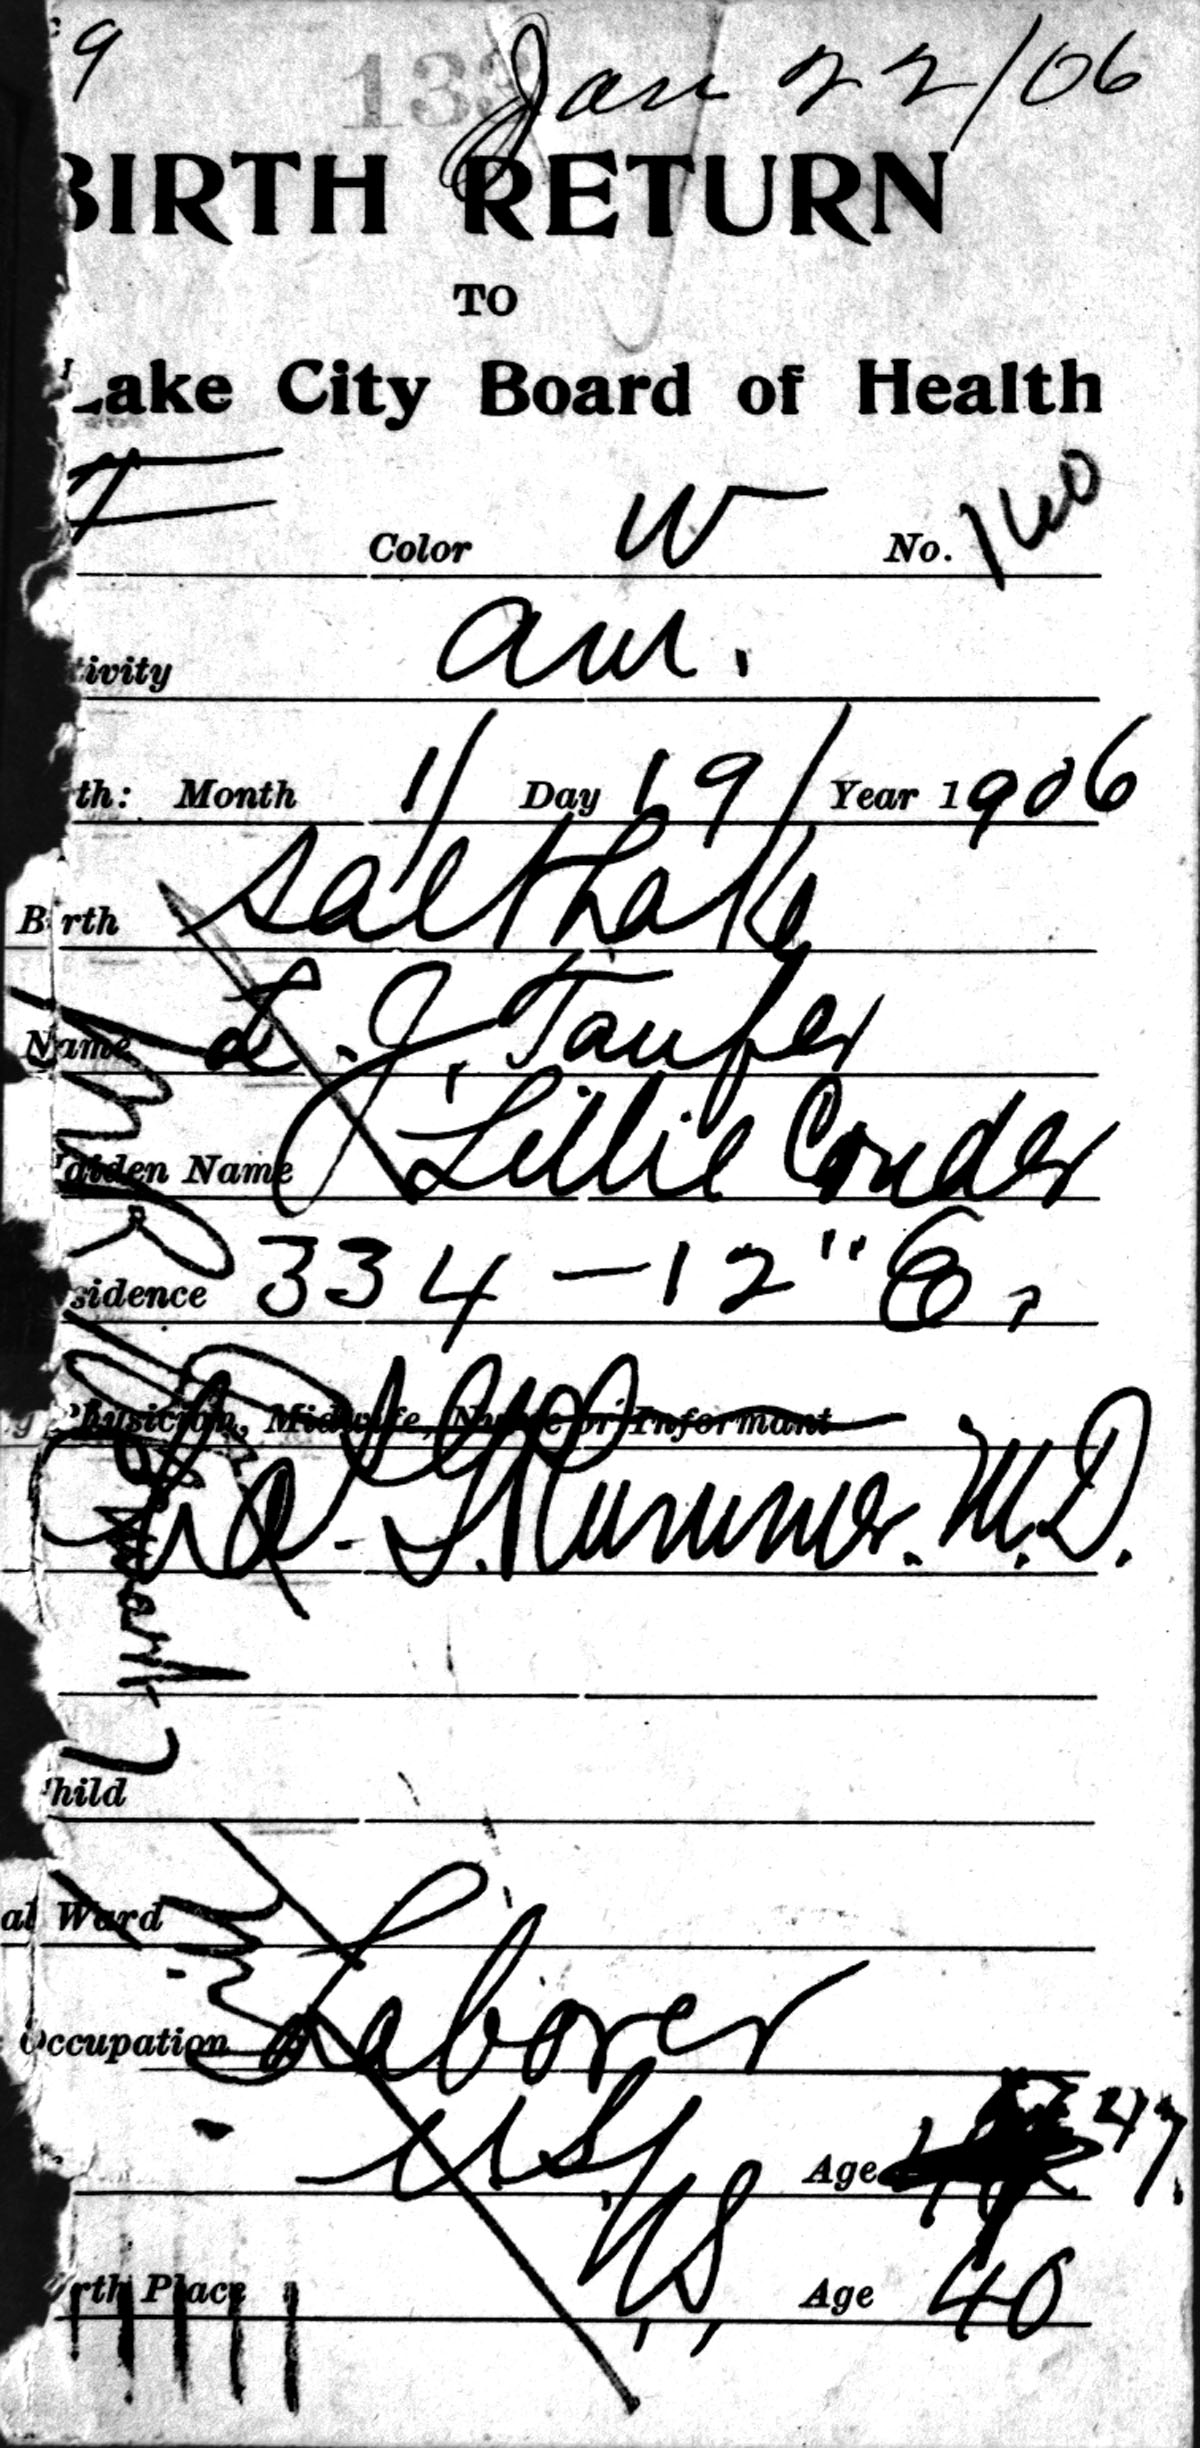 9 Jan 22/06
133
BIRTH RETURN
TO
Lake City Board of Health
Color W No. 160
tivity am.
th: Month 1/ Day 19/ Year 1906
Birth Salt Lake
Name L. J. Taufer
aiden Name Lillie Conder
sidence 334 - 12" E.
g Physician, Midwife, Nurse or Informant
M.D.
hild
al Ward
Occupation Laborer
US Age 47
rth Place U.S. Age 40